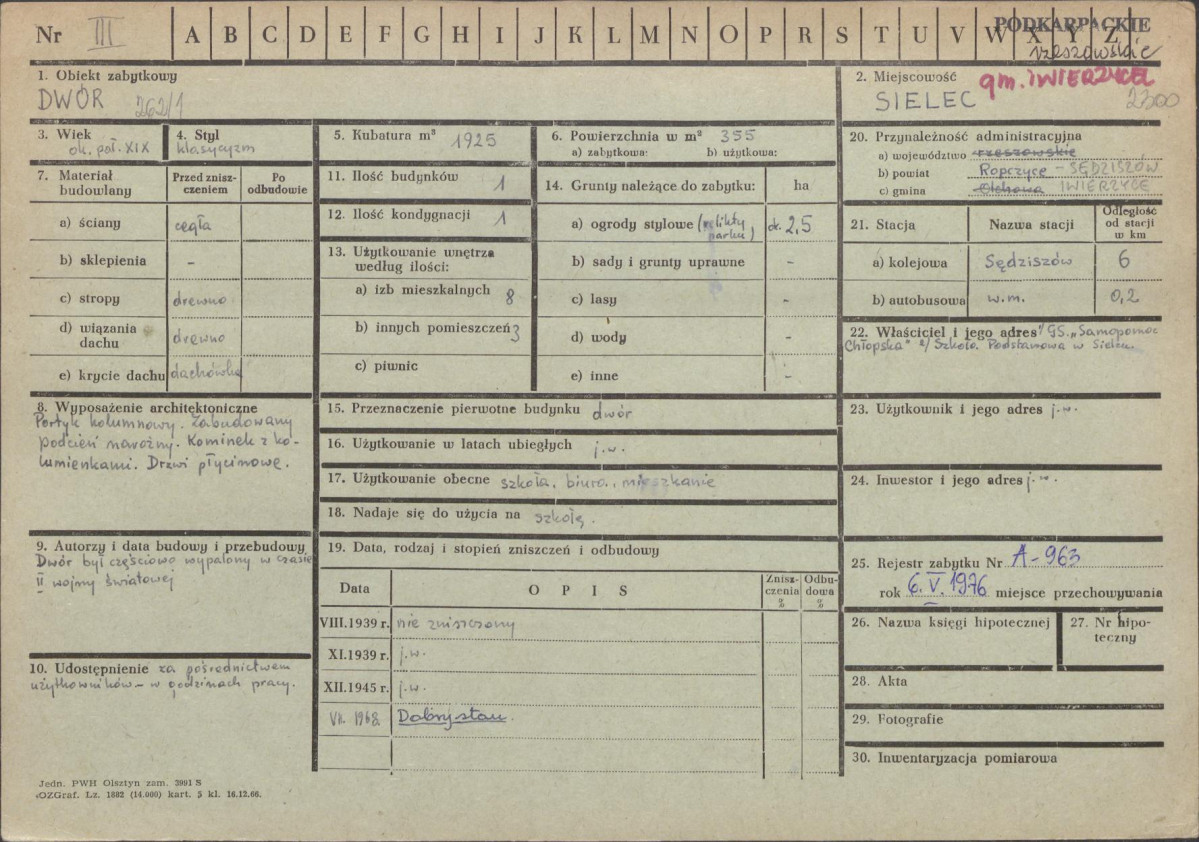 Nr III A B C D E F G H I J K L M N O P R S T U V W X Y Z
PODKARPACKIE
rzeszowskie
1. Obiekt zabytkowy
DWÓR 262/1
2. Miejscowość gm. IWIERZYCE
SIELEC 2300
3. Wiek
ok. poł. XIX
4. Styl
klasycyzm
5. Kubatura m³ 1925
6. Powierzchnia w m² 355
a) zabytkowa: b) użytkowa:
7. Materiał budowlany
Przed zniszczeniem
Po odbudowie
a) ściany cegła
b) sklepienia -
c) stropy drewno
d) wiązania dachu drewno
e) krycie dachu dachówka
8. Wyposażenie architektoniczne
Portyk kolumnowy. Zabudowany
podcień narożny. Kominek z ko-
lumienkami. Drzwi płycinowe.
9. Autorzy i data budowy i przebudowy
Dwór był częściowo wypalony w czasie
II wojny światowej
10. Udostępnienie za pośrednictwem
użytkowników - w godzinach pracy.
11. Ilość budynków 1
12. Ilość kondygnacji 1
13. Użytkowanie wnętrza
według ilości:
a) izb mieszkalnych 8
b) innych pomieszczeń 3
c) piwnic
14. Grunty należące do zabytku: ha
a) ogrody stylowe (relikty parku) ok. 2,5
b) sady i grunty uprawne -
c) lasy -
d) wody -
e) inne -
15. Przeznaczenie pierwotne budynku dwór
16. Użytkowanie w latach ubiegłych j.w.
17. Użytkowanie obecne szkoła, biuro, mieszkanie
18. Nadaje się do użycia na szkołę.
19. Data, rodzaj i stopień zniszczeń i odbudowy
Data OPIS Zniszczenia % Odbudowa %
VIII.1939 r. nie zniszczony
XI.1939 r. j.w.
XII.1945 r. j.w.
VII. 1968 Dobry stan.
20. Przynależność administracyjna
a) województwo rzeszowskie
b) powiat Ropczyce - SĘDZISZÓW
c) gmina Olchowa IWIERZYCE
21. Stacja Nazwa stacji Odległość od stacji w km
a) kolejowa Sędziszów 6
b) autobusowa w.m. 0,2
22. Właściciel i jego adres 1/ GS. „Samopomoc
Chłopska" 2/ Szkoła Podstawowa w Sielcu.
23. Użytkownik i jego adres j.w.
24. Inwestor i jego adres j.w.
25. Rejestr zabytku Nr A-963
rok 6.V.1976 miejsce przechowywania
26. Nazwa księgi hipotecznej
27. Nr hipoteczny
28. Akta
29. Fotografie
30. Inwentaryzacja pomiarowa
Jedn. PWH Olsztyn zam. 3991 S
OZGraf. Lz. 1882 (14.000) kart. 5 kl. 16.12.66.